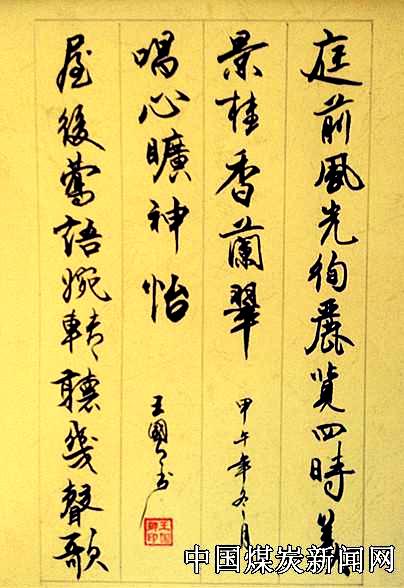 庭前風光絢麗覽四時美
景桂香蘭翠
甲午年九月
屋後鶯語婉轉聽幾聲歌
唱心曠神怡
王國
中国煤炭新闻网